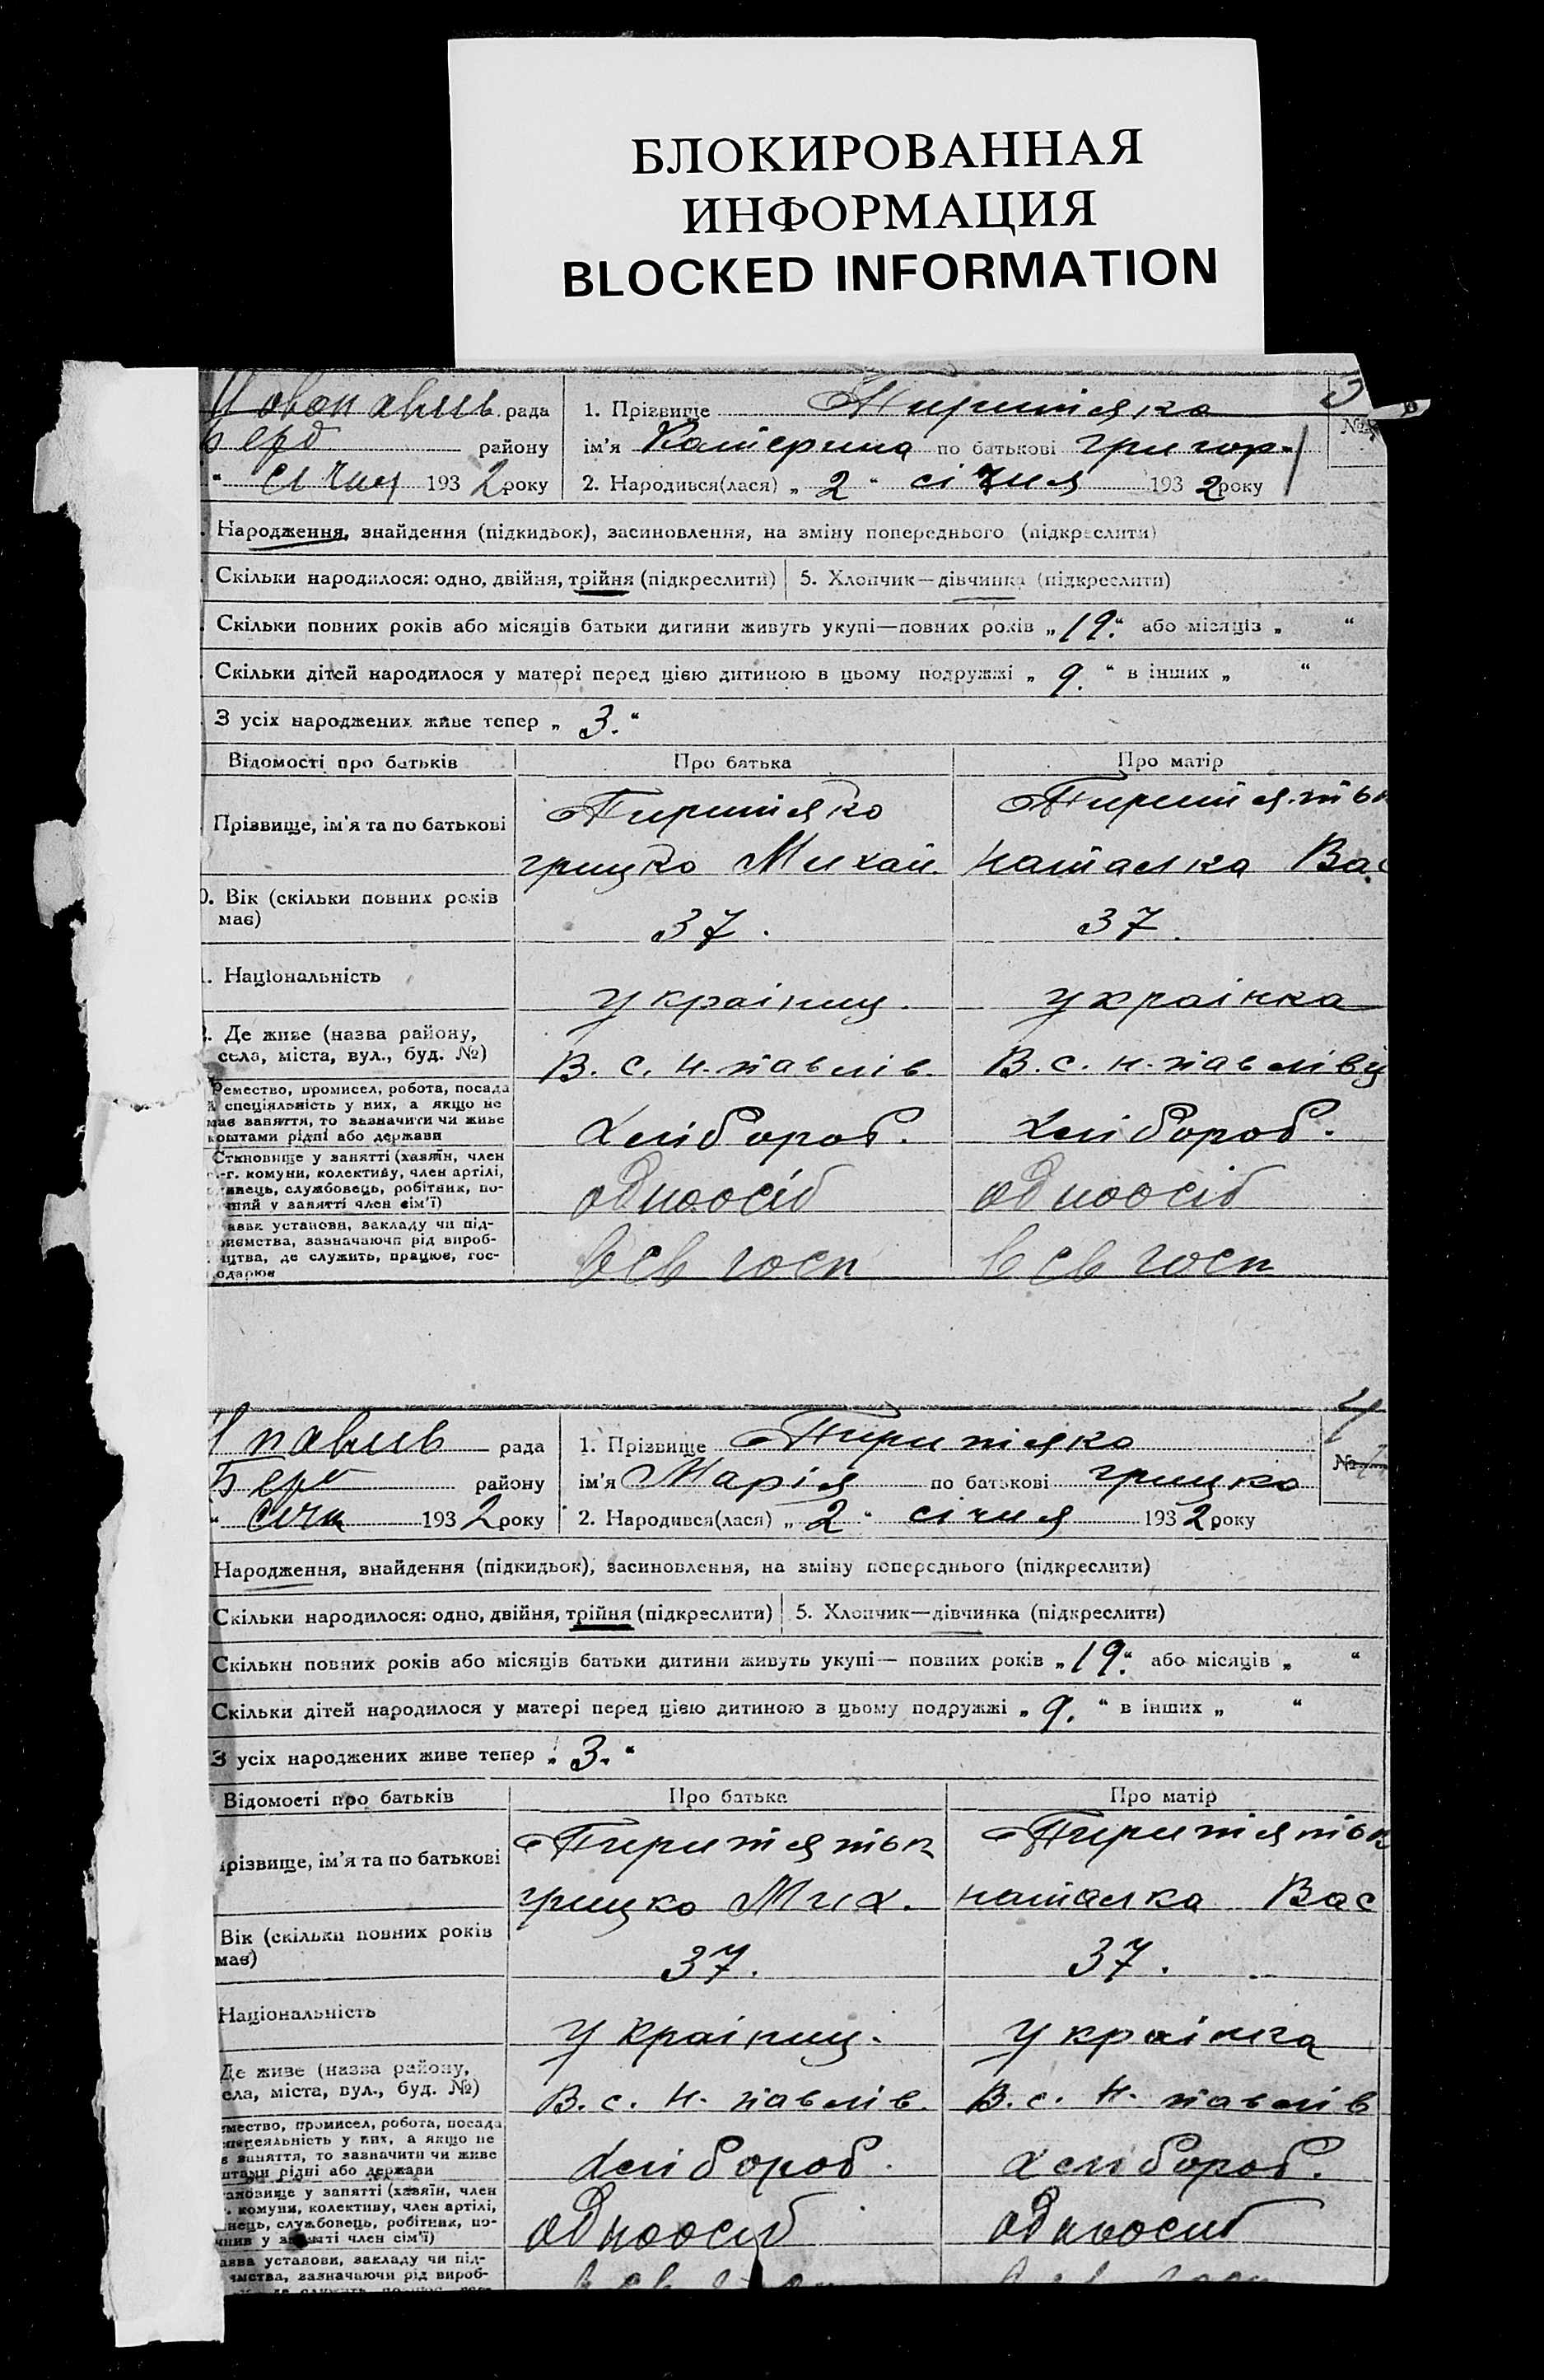 БЛОКИРОВАННАЯ
ИНФОРМАЦИЯ
BLOCKED INFORMATION
рада 1. Прізвище
району ім'я Катерина по батькові григор.
січня 1932 року 2. Народився(лася) „ 2 “ січня 1932 року
Народження, знайдення (підкидьок), засиновлення, на зміну попереднього (підкреслити)
Скільки народилося: одно, двійня, трійня (підкреслити) 5. Хлопчик—дівчинка (підкреслити)
Скільки повних років або місяців батьки дитини живуть укупі—повних років „ 19. “ або місяців „ “
Скільки дітей народилося у матері перед цією дитиною в цьому подружжі „ 9. “ в інших „ “
З усіх народжених живе тепер „ 3. “
Відомості про батьків Про батька Про матір
Прізвище, ім'я та по батькові
грицько Михай. наталка Вас
Вік (скільки повних років
має) 37. 37.
Національність
українец. українка
Де живе (назва району,
села, міста, вул., буд. №) В. с. н-павлів. В. с. н-павлівц
Ремество, промисел, робота, посада
спеціяльність у них, а якщо не
має заняття, то зазначити чи живе
коштами рідні або держави хлібороб. хлібороб.
Становище у занятті (хазяїн, член
с.-г. комуни, колективу, член артілі,
службовець, робітник, по-
член сім'ї) одноосіб одноосіб
установи, закладу чи під-
приємства, зазначаючи рід вироб-
ництва, де служить, працює, гос-
подарює в св госп в св госп
4
рада 1. Прізвище
району ім'я Марія по батькові грицько №
січн 1932 року 2. Народився(лася) „ 2 “ січня 1932 року
Народження, знайдення (підкидьок), засиновлення, на зміну попереднього (підкреслити)
Скільки народилося: одно, двійня, трійня (підкреслити) 5. Хлопчик—дівчинка (підкреслити)
Скільки повних років або місяців батьки дитини живуть укупі— повних років „ 19. “ або місяців „ “
Скільки дітей народилося у матері перед цією дитиною в цьому подружжі „ 9. “ в інших „ “
З усіх народжених живе тепер „ 3. “
Відомості про батьків Про батька Про матір
прізвище, ім'я та по батькові
грицько Мих. наталка Вас
Вік (скільки повних років
має) 37. 37.
Національність
українец. українка
Де живе (назва району,
села, міста, вул., буд. №) В. с. н. павлів. В. с. н. павлів
промисел, робота, посада
у них, а якщо не
заняття, то зазначити чи живе
рідні або держави хлібороб. хлібороб.
у занятті (хазяїн, член
комуни, колективу, член артілі,
службовець, робітник, по-
у член сім'ї) одноосиб одноосиб
установи, закладу чи під-
зазначаючи рід вироб-